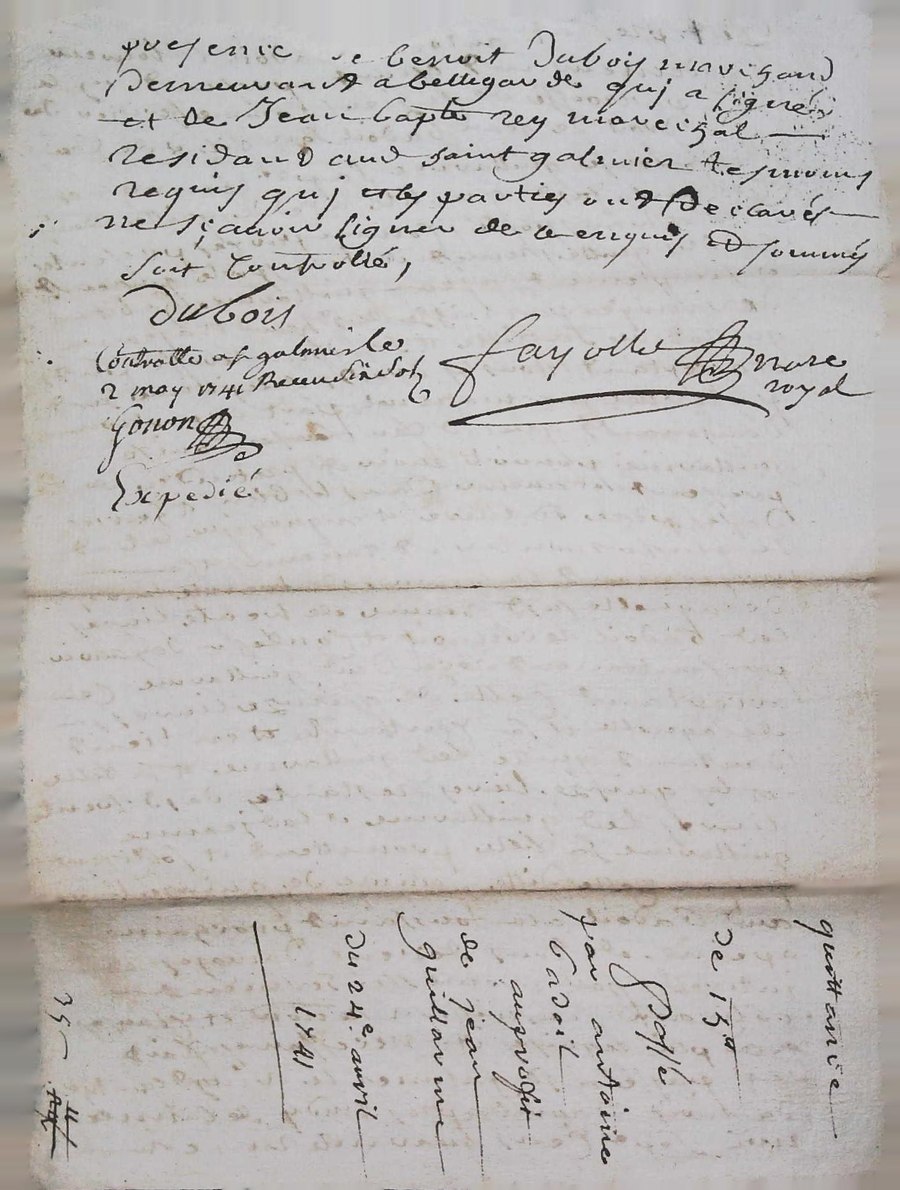 presence de benoit Dubois marchand
Demeurant a bellegarde qui a signé
et de Jean bapte rey marechal
residand aud saint galmier tesmoins
requis qui et les parties ont declarés
ne sçavoir signer de ce enquis et sommés
soit controllé,
Dubois
Controlle a st galmier le
2 may 1741 Receu six sols
Gonon
fayolle nore
royal
Expedié
quittance
de 15lt
passé
par antoine
badoil
au profit
de jean
guillaume
du 24e avril
1741
35